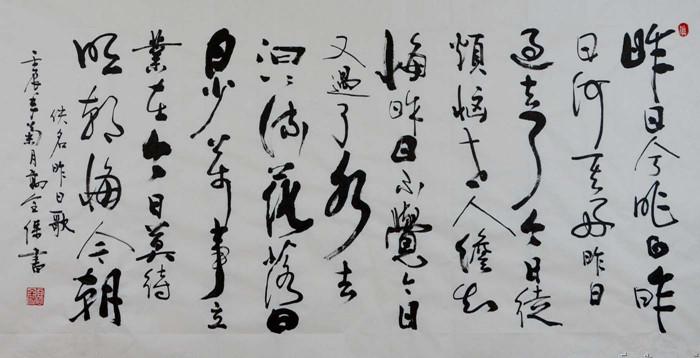 昨日兮昨日昨
日何其好昨日
過去了今日徒
煩惱世人儋知
悔昨日不覺今日
又過了水去
汩汩流花落日
日少萬事立
業在今日莫待
明朝悔今朝
佚名昨日歌
壬辰年菊月高全保書